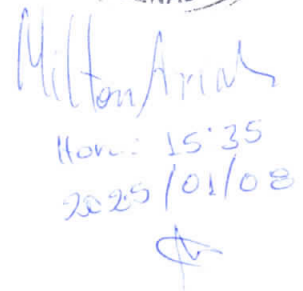 Milton Arias
Hora: 15:35
2025/01/08